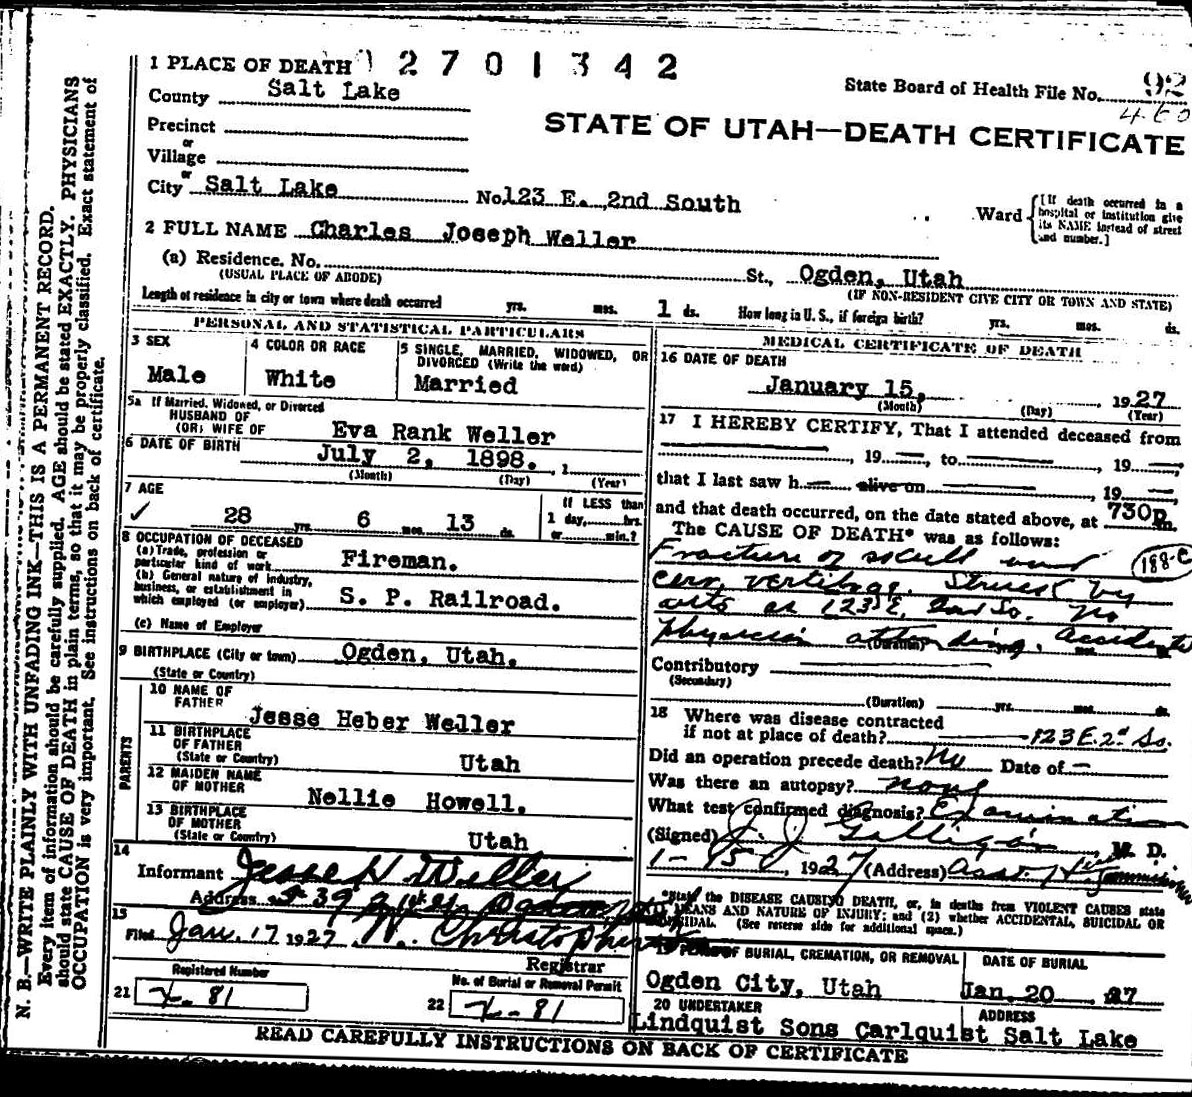 1 PLACE OF DEATH 12701342
County Salt Lake
State Board of Health File No. 92
460
STATE OF UTAH—DEATH CERTIFICATE
Precinct
or
Village
or
City Salt Lake No. 123 E. 2nd South
Ward
[If death occurred in a
hospital or institution give
its NAME instead of street
and number.]
2 FULL NAME Charles Joseph Weller
(a) Residence. No. St., Ogden, Utah
(USUAL PLACE OF ABODE) (IF NON-RESIDENT GIVE CITY OR TOWN AND STATE)
Length of residence in city or town where death occurred yrs. mos. 1 ds. How long in U. S., if foreign birth? yrs. mos. ds.
PERSONAL AND STATISTICAL PARTICULARS
3 SEX
Male
4 COLOR OR RACE
White
5 SINGLE, MARRIED, WIDOWED, OR
DIVORCED (Write the word)
Married
5a If Married, Widowed, or Divorced
HUSBAND OF
(OR) WIFE OF Eva Rank Weller
6 DATE OF BIRTH July 2, 1898. , 1
(Month) (Day) (Year)
7 AGE
✓ 28 yrs. 6 mos. 13 ds.
If LESS than
1 day, hrs.
or min.?
8 OCCUPATION OF DECEASED
(a) Trade, profession or
particular kind of work Fireman.
(b) General nature of industry,
business, or establishment in
which employed (or employer) S. P. Railroad.
(c) Name of Employer
9 BIRTHPLACE (City or town) Ogden, Utah.
(State or Country)
PARENTS
10 NAME OF
FATHER Jesse Heber Weller
11 BIRTHPLACE
OF FATHER
(State or Country) Utah
12 MAIDEN NAME
OF MOTHER Nellie Howell.
13 BIRTHPLACE
OF MOTHER
(State or Country) Utah
14
Informant Jesse H Weller
Address 439 Ogden
15
Filed Jan. 17 1927 W. Christopherson
Registrar
Registered Number
21 X-81
No. of Burial or Removal Permit
22 X-81
MEDICAL CERTIFICATE OF DEATH
16 DATE OF DEATH
January 15, 1927
(Month) (Day) (Year)
17 I HEREBY CERTIFY, That I attended deceased from
, 19 , to , 19 ;
that I last saw h alive on , 19 ,
and that death occurred, on the date stated above, at 730p m.
The CAUSE OF DEATH* was as follows:
Fracture of skull and 188-c
cerv. vertibrae. Struck by
auto at 123 E. 2nd So. No
physician attending. Accident
(Duration) yrs. mos.
Contributory
(Secondary)
(Duration) yrs. mos. ds.
18 Where was disease contracted
if not at place of death? 123 E. 2d So.
Did an operation precede death? No Date of —
Was there an autopsy? none
What test confirmed diagnosis? Examination
(Signed) J. J. Galligan, M. D.
1-15, 1927 (Address) Asst.
*State the DISEASE CAUSING DEATH, or, in deaths from VIOLENT CAUSES state
(1) MEANS AND NATURE OF INJURY; and (2) whether ACCIDENTAL, SUICIDAL OR
HOMICIDAL. (See reverse side for additional space.)
19 PLACE OF BURIAL, CREMATION, OR REMOVAL
Ogden City, Utah
DATE OF BURIAL
Jan. 20 27
20 UNDERTAKER
Lindquist Sons Carlquist
ADDRESS
Salt Lake
READ CAREFULLY INSTRUCTIONS ON BACK OF CERTIFICATE
N. B.—WRITE PLAINLY WITH UNFADING INK—THIS IS A PERMANENT RECORD.
Every item of information should be carefully supplied. AGE should be stated EXACTLY. PHYSICIANS
should state CAUSE OF DEATH in plain terms, so that it may be properly classified. Exact statement of
OCCUPATION is very important. See instructions on back of certificate.